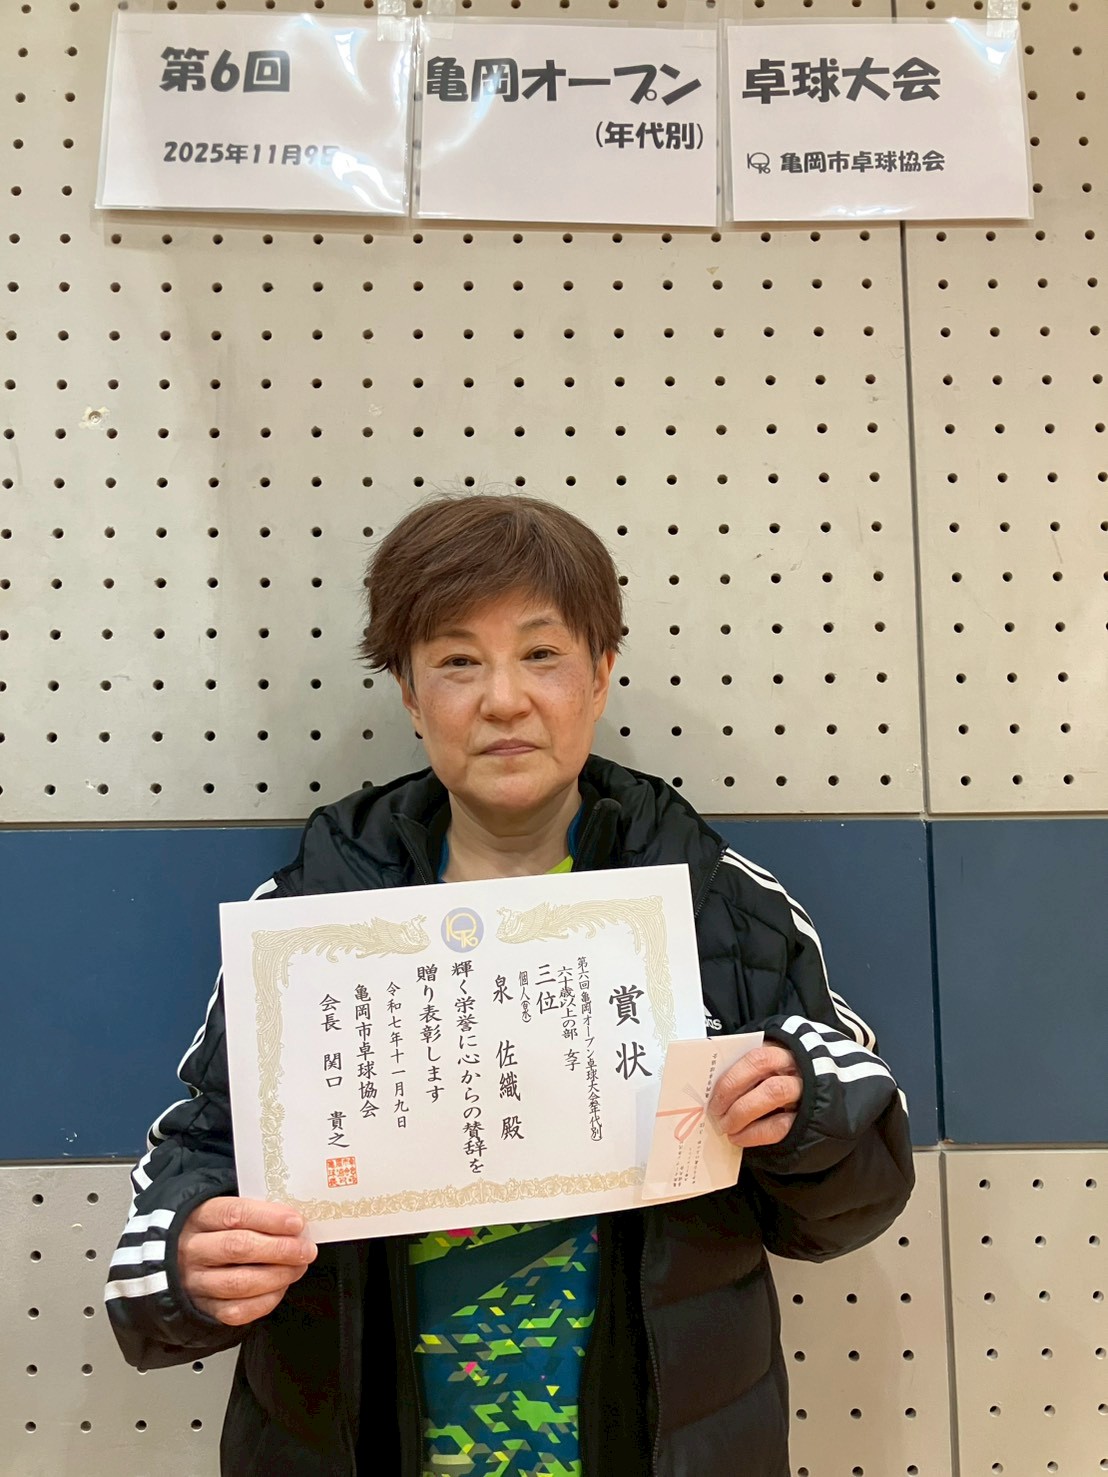 第6回
2025年11月9日
亀岡オープン
(年代別)
卓球大会
亀岡市卓球協会
賞状
第六回亀岡オープン卓球大会(年代別)
六十歳以上の部 女子
三位
泉 佐織 殿
輝く栄誉に心からの賛辞を
贈り表彰します
令和七年十一月九日
亀岡市卓球協会
会長 関口 貴之